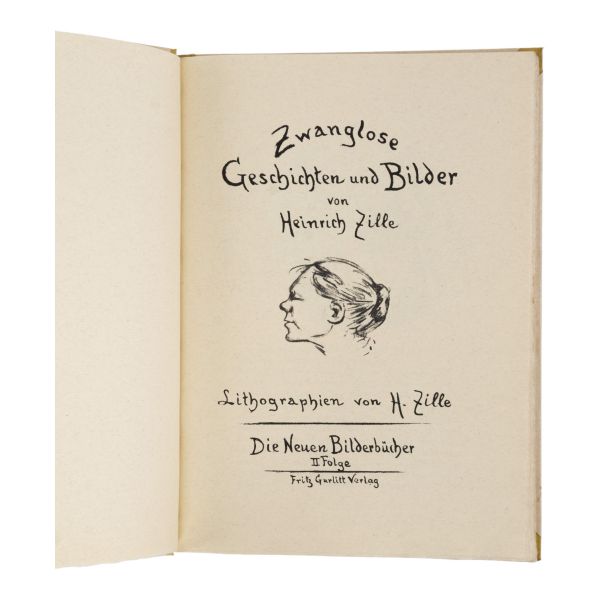 Zwanglose
Geschichten und Bilder
von
Heinrich Zille
Lithographien von H. Zille
Die Neuen Bilderbücher
II Folge
Fritz Gurlitt Verlag